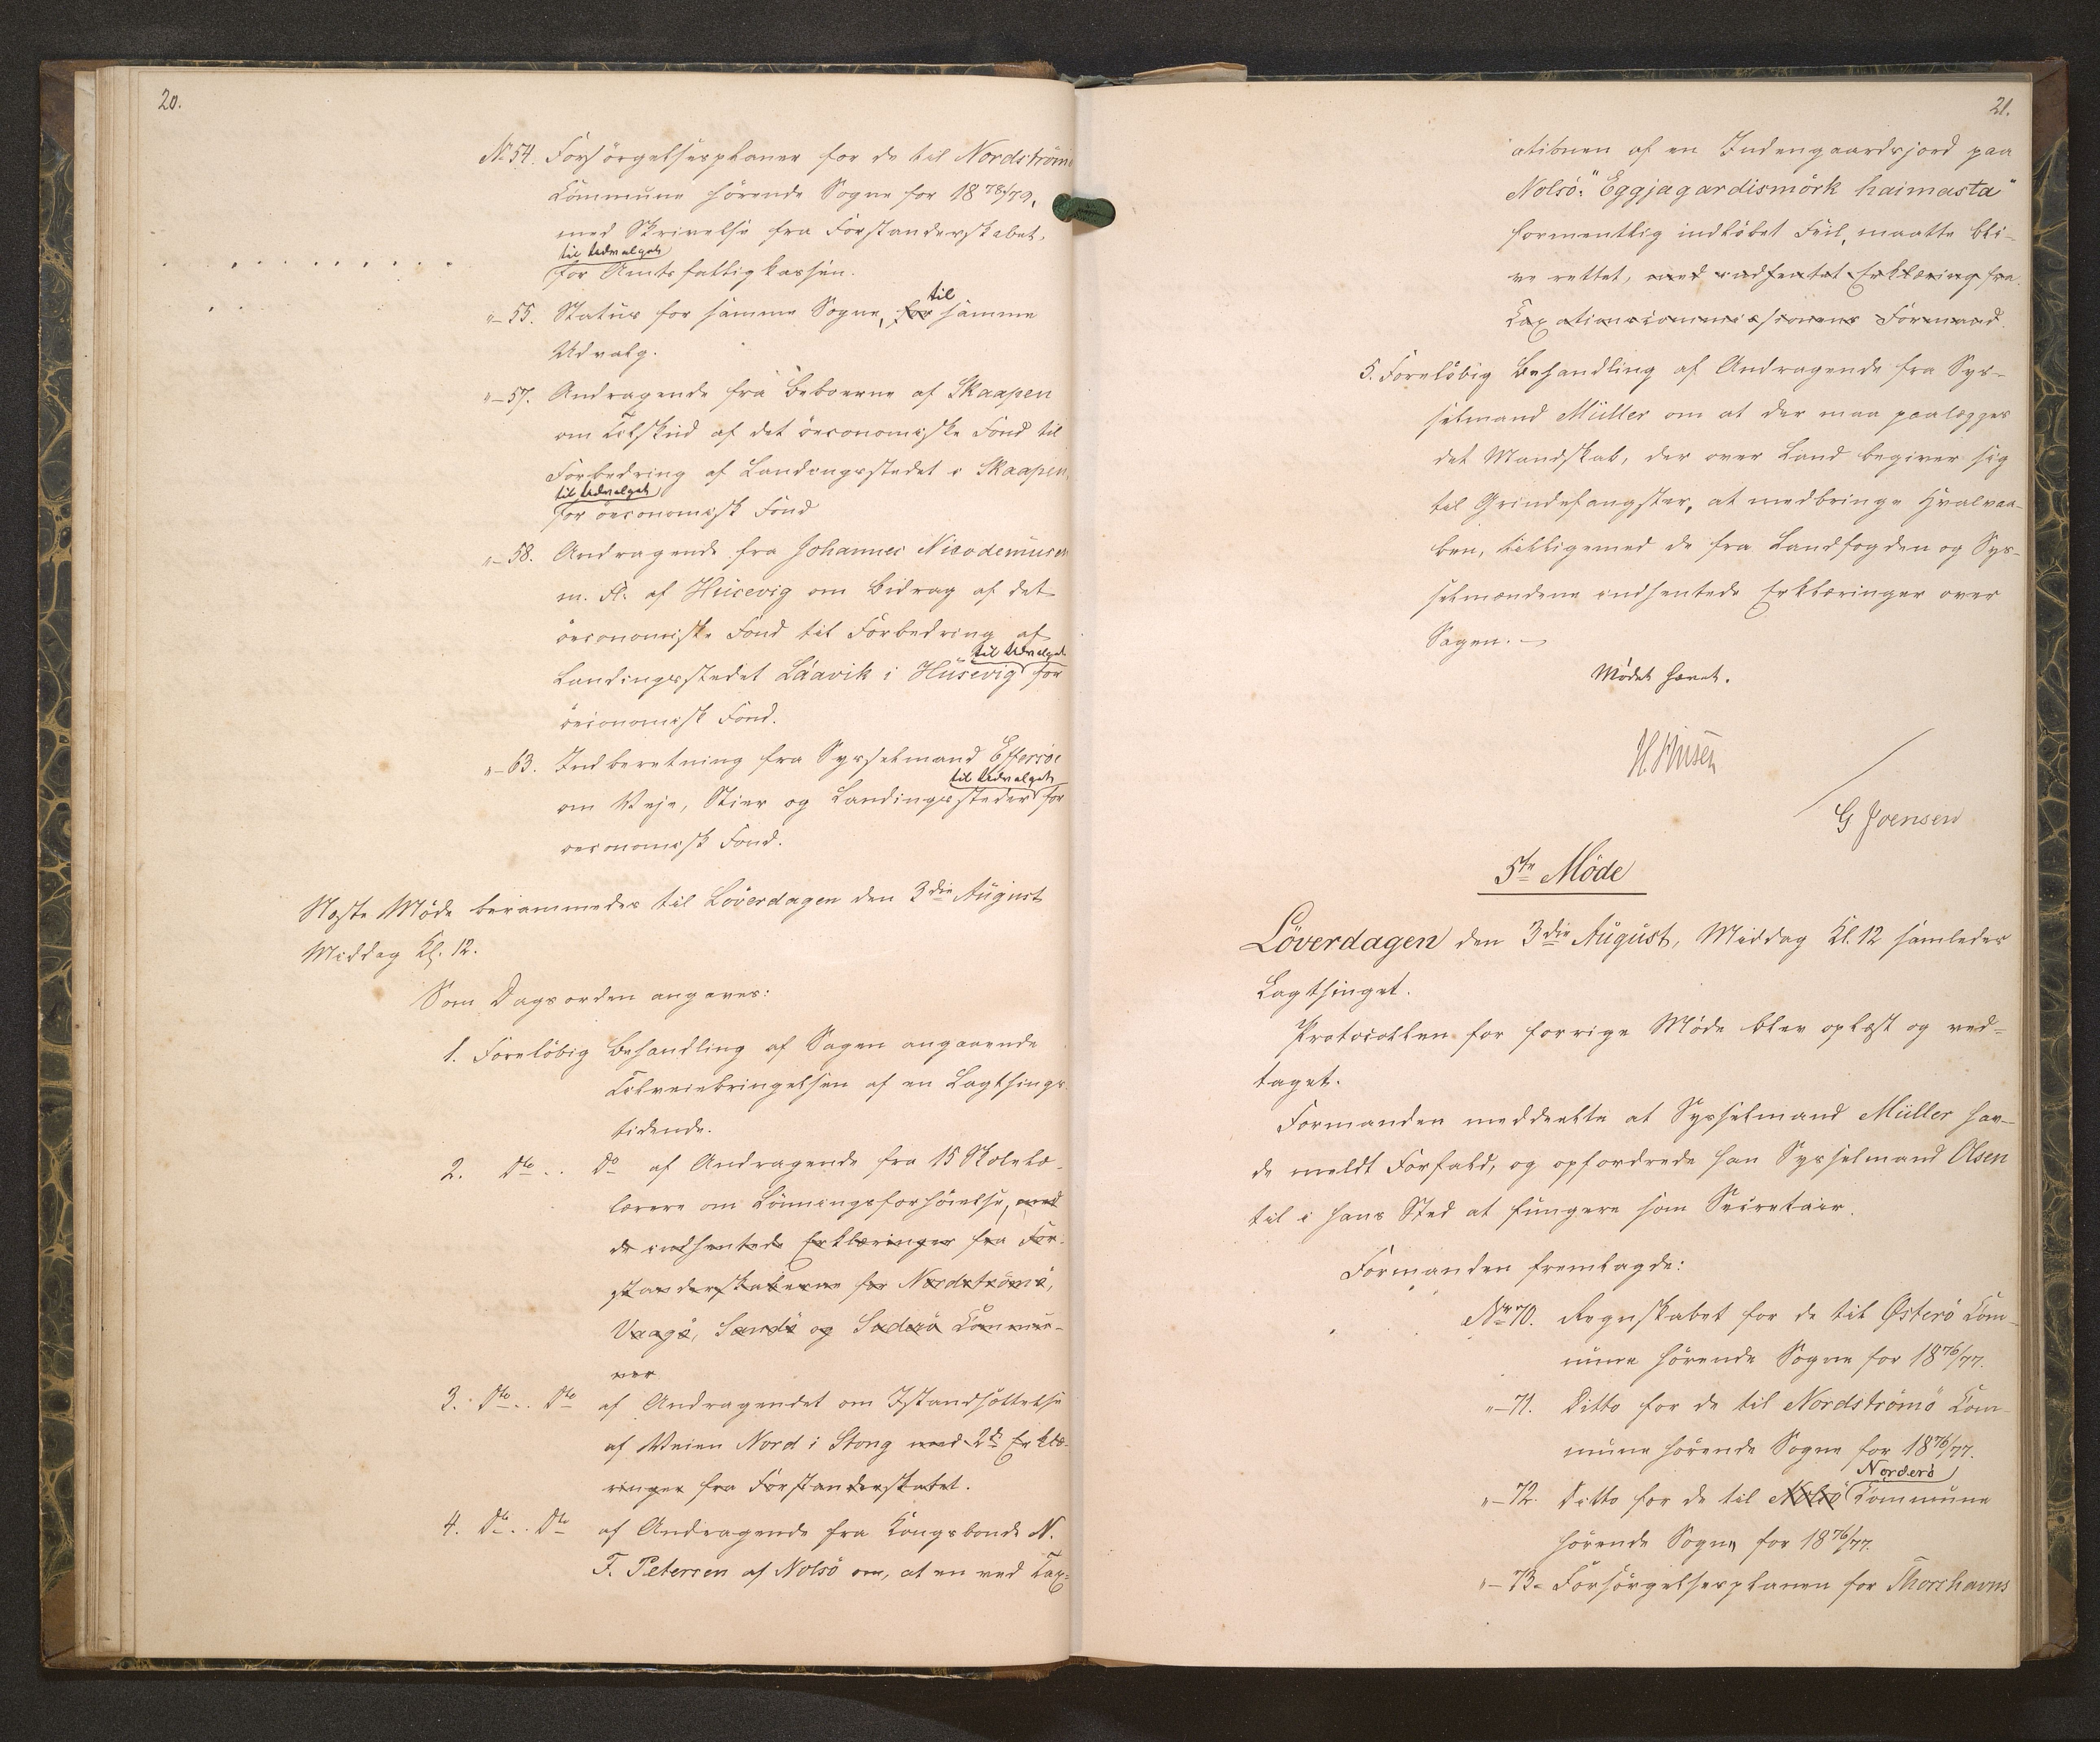 20.
No 54. Forsörgelsesplaner for de til Nordströmö
Commune hörende Sogne for 1878/79,
med Skrivelse fra Forstanderskabet,
til Udvalget
for Amtsfattigkassen.
"–55. Status for samme Sogne, for samme
til
Udvalg.
"–57. Andragende fra Beboerne af Skaapen
om Tilskud af det öconomiske Fond til
Forbedring af Landingsstedet i Skaapen,
til Udvalget
for öeconomisk Fond
"–58. Andragende fra Johannes Nicodemusen
m. Fl. af Húsevig om Bidrag af det
öeconomiske Fond til Forbedring af
til Udvalget
Landingsstedet Láavik i Húsevig for
öeconomisk Fond.
"–63. Indberetning fra Sysselmand Effersöe
til Udvalget
om Veje, Stier og Landingssteder for
oeconomisk Fond.
Næste Möde berammedes til Löverdagen den 3die August
Middag Kl. 12.
Som Dagsorden angaves:
1. Foreløbig Behandling af Sagen angaaende
Tilveiebringelsen af en Lagthings-
tidende.
2. Dto.. Do af Andragende fra 15 Skolelæ-
lærere om Lönningsforhöielse, med
de indhentede Erklæringer fra For-
standerskaberne for Nordströmö,
Vaagö, Sandö og Suderö Commu-
ner
3. Dto.. Dto af Andragendet om Istandsættelse
af Veien Nord i Stong med 2de Erklæ-
ringer fra Forstanderskabet.
4. Dto.. Dto af Andragende fra Kongsbonde N.
F. Petersen af Nolsö om, at en ved Tax-
21.
ationen af en Indengaardsjord paa
Nolsö: "Eggjagardismörk haimasta"
formentlig indløbet Feil, maatte bli-
ve rettet, med indhentet Erklæring fra
Taxationscommissionens Formand.
5. Foreløbig Behandling af Andragende fra Sys-
selmand Müller om at der maa paalægges
det Mandskab, der over Land begiver sig
til Grindefangster, at medbringe Hvalvaa-
ben, tilligemed de fra Landfogden og Sys-
selmændene indhentede Erklæringer over
Sagen. –
Mödet hævet.
G Joensen
5te Möde
Löverdagen den 3die August, Middag Kl. 12 samledes
Lagthinget.
Protocollen for forrige Möde blev oplæst og ved-
taget.
Formanden meddeelte at Sysselmand Müller hav-
de meldt Forfald, og opfordrede han Sysselmand Olsen
til i hans Sted at fungere som Secretair.
Formanden fremlagde:
No 70. Regnskabet for de til Österö Com-
mune hörende Sogne for 1876/77.
"–71. Ditto for de til Nordströmö Com-
mune hörende Sogne for 1876/77.
Norderö
"–72. Ditto for de til Nolsö Commune
hörende Sogne for 1876/77.
"–73. Forsörgelsesplanen for Thorshavns